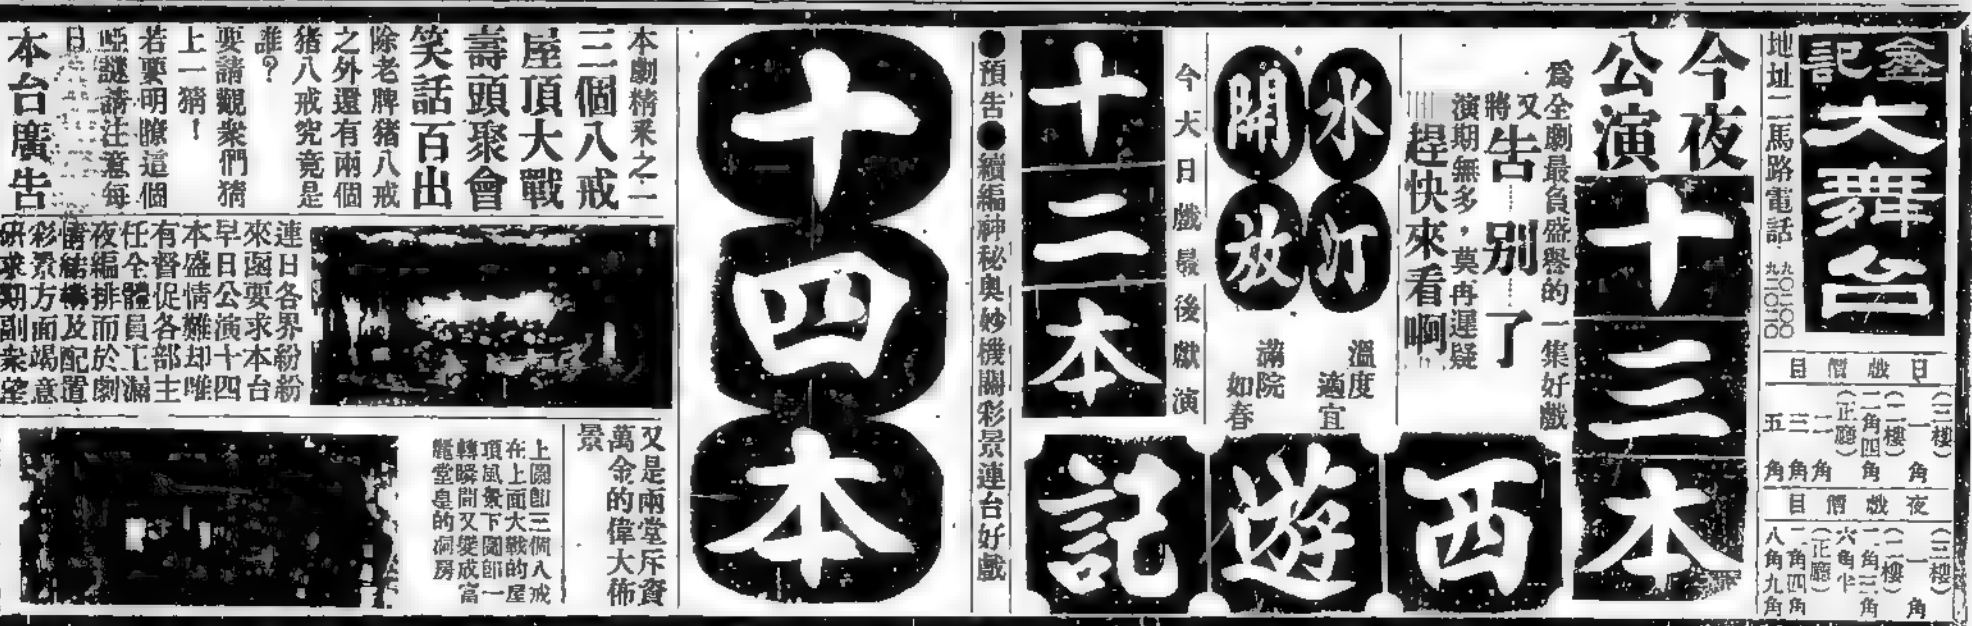 鑫記
大舞台
地址二馬路電話
日戲價目
(三樓)一角
(二樓)二角四角
(正廳)一角
三角
五角
夜戲價目
(三樓)一角
(二樓)
(正廳)
二角四角
八角九角
今夜
公演
十三本
為全劇最負盛譽的一集好戲
又將告别了
演期無多，莫再遲疑
趕快來看啊
水汀
開放
溫度適宜
滿院如春
西遊記
今天日戲最後獻演
十二本
●預告●續編神秘奧妙機關彩景連台好戲
十四本
本劇精釆之一
三個八戒
屋頂大戰
壽頭聚會
笑話百出
除老牌猪八戒
之外還有兩個
猪八戒究竟是
誰？
要請觀衆們猜
上一猜！
若要明瞭這個
啞謎請注意每
日
本台廣告
連日各界紛紛
來函要求本台
早日公演十四
本盛情難却唯
有督促各部主
任全體員工漏
夜編排而於劇
情結構及配置
彩景方面竭意
研求期副衆望
又是兩堂斥資
萬金的偉大佈
景
上圖即三個八戒
在上面大戰的屋
頂風景下圖即一
轉瞬間又變成富
麗堂皇的洞房